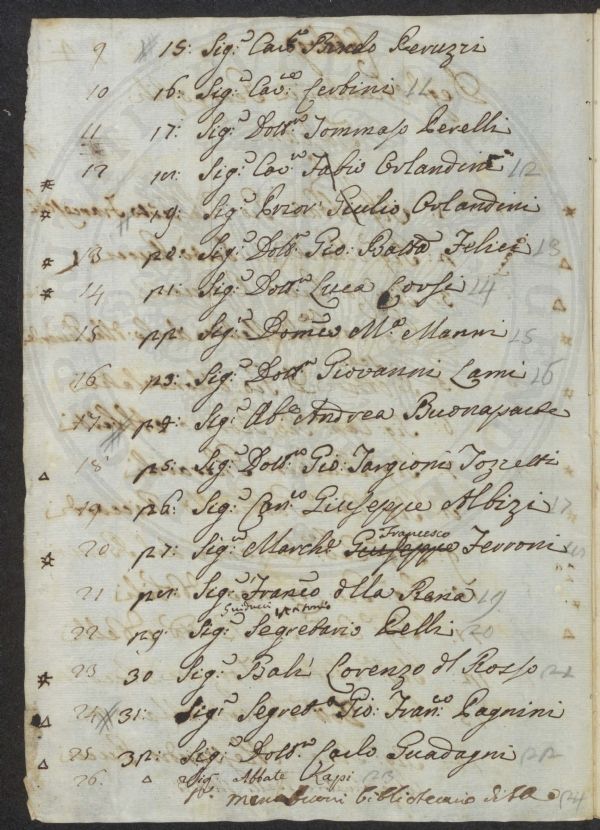 9 15: Sig.r Cav.e Bindo Peruzzi
10 16: Sig.r Cav.ro Cerbini 11
11 17: Sig.r Dott.re Tommaso Perelli
12 18: Sig.r Cav.re Fabio Orlandini 12
19: Sig.r Prior Giulio Orlandini
13 20: Sig.r Dott. Gio: Batta Felici 13
14 21: Sig.r Dott.r Luca Corsi 14
15 22: Sig.r Domco M.a Manni 15
16 23: Sig.r Dott.r Giovanni Lami 16
17 24: Sig.r Ab.e Andrea Buonaparte
18 25: Sig.r Dott.re Gio: Targioni Tozzetti
19 26: Sig.r Can.co Giuseppe Albizi 17
20 27: Sig.r March.e Giuseppe Francesco Ferroni 18
21 28: Sig.r Franco della Rena 19
22 29: Sig.r Segretario Pelli 20
23 30 Sig.r Balì Lorenzo del Rosso 21
24 31: Sig.r Segret.o Gio: Fran.co Pagnini
25 32: Sig.r Dott.re Carlo Guadagni 22
26. Sig.r Abbate 23
Menabuoni bibliotecario 24